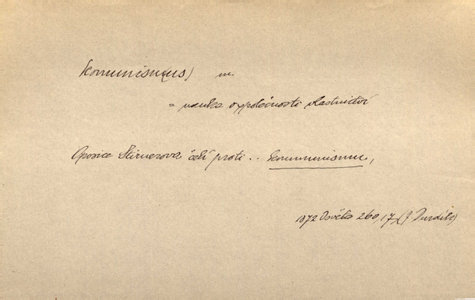 komunism(us) m.
= nauka o společnosti vlastnictví
Oposice Stirnerova čelí proti .. komunismu,
1872 Osvěta 260, 17 (J. Durdík)